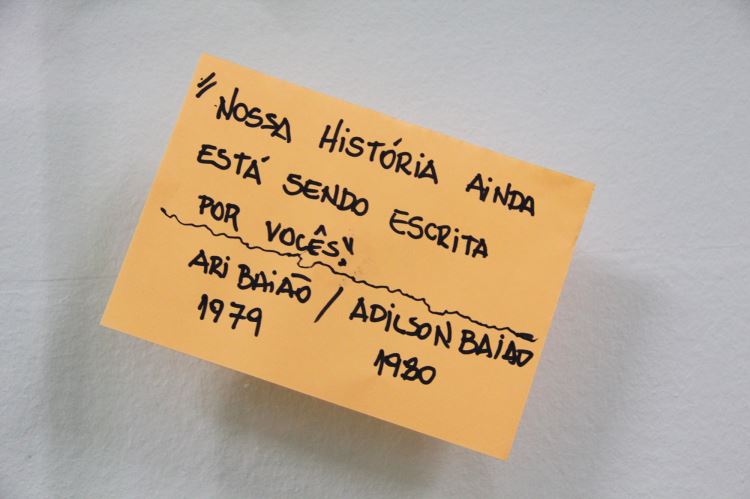 "NOSSA HISTÓRIA AINDA
ESTÁ SENDO ESCRITA
POR VOCÊS!"
ARI BAIÃO / ADILSON BAIÃO
1979 1980